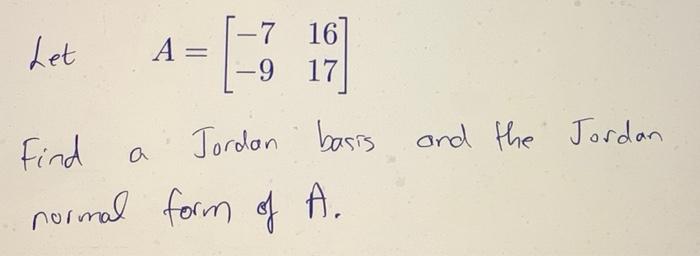 Let A = [-7 16
-9 17]
Find a Jordan basis and the Jordan
normal form of A.